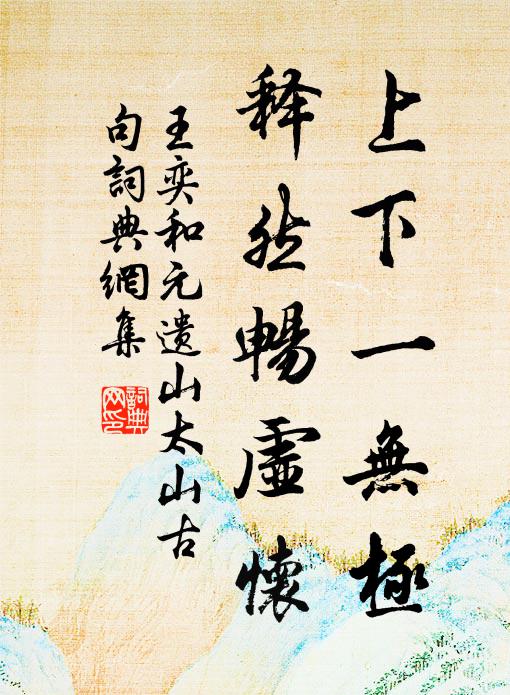 上下一無極
释然暢虛懷
王奕和元遗山太山古
句詞典網集
詞典
网印